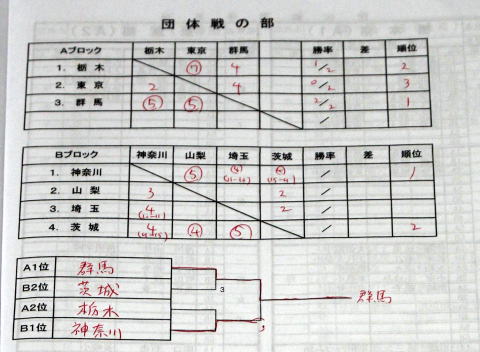 団体戦の部
Aブロック 栃木 東京 群馬 勝率 差 順位
1. 栃木 ⑦ 4 1/2 2
2. 東京 2 4 0/2 3
3. 群馬 ⑤ ⑤ 2/2 1
Bブロック 神奈川 山梨 埼玉 茨城 勝率 差 順位
1. 神奈川 ⑤ 1
2. 山梨 3 2
3. 埼玉 4 2
4. 茨城 4 ④ ⑤ 2
A1位 群馬
B2位 茨城
A2位 栃木
B1位 神奈川
3
群馬